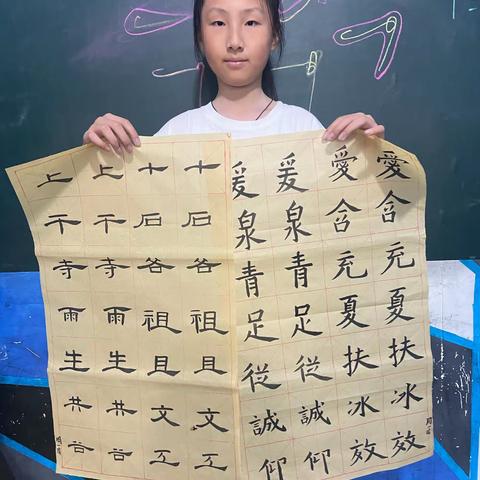 愛含充夏扶冰效
愛含充夏扶冰效
爰泉青足從誠仰
爰泉青足從誠仰
十石谷祖且文工
十石谷祖且文工
上干寺雨生共谷
上干寺雨生共谷